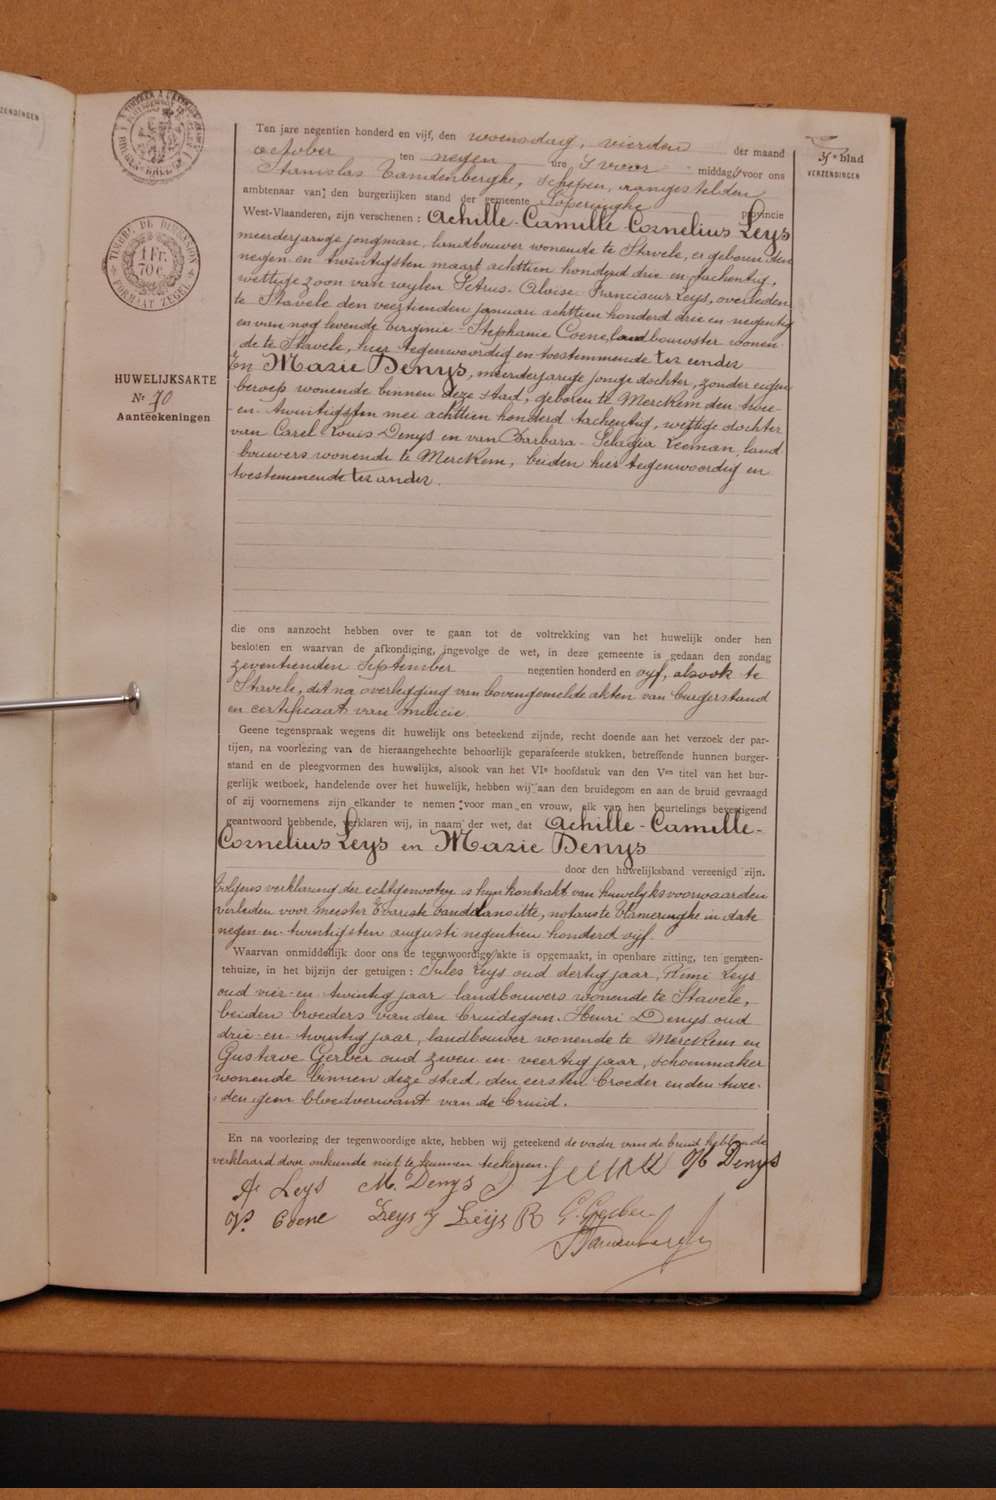 ZENDINGEN
TIMBRE DE DIMENSION
1 Fr.
70 c.
FORMAAT ZEGEL
HUWELIJKSAKTE
Nr 70
Aanteekeningen
5e blad
VERZENDINGEN
Ten jare negentien honderd en vijf, den woensdag, vierden der maand
october ten negen ure voor middag voor ons
Stanislas Vandenberghe, schepen, aangestelden
ambtenaar van den burgerlijken stand der gemeente Poperinghe provincie
West-Vlaanderen, zijn verschenen : Achille-Camille-Cornelius Leys
meerderjarige jongman, landbouwer wonende te Stavele, er geboren den
negen en twintigsten maart achttien honderd drie en tachentig,
wettige zoon van wijlen Petrus-Aloise-Franciscus Leys, overleden
te Stavele den veertienden januari achttien honderd drie en negentig
en van nog levende Virginie-Stephanie Coene, landbouwster wonen
de te Stavele, hier tegenwoordig en toestemmende ter eender
En Marie Denys, meerderjarige jonge dochter, zonder eigen
beroep wonende binnen deze stad, geboren te Merckem den twee-
en-twintigsten mei achttien honderd tachentig, wettige dochter
van Carel-Louis Denys en van Barbara-Pelagia Leeman, land
bouwers wonende te Merckem, beiden hier tegenwoordig en
toestemmende ter ander.
die ons aanzocht hebben over te gaan tot de voltrekking van het huwelijk onder hen
besloten en waarvan de afkondiging, ingevolge de wet, in deze gemeente is gedaan den zondag
zeventienden september negentien honderd en vijf, alsook te
Stavele, dit na overlegging van bovengemelde akten van burgerstand
en certificaat van milicie.
Geene tegenspraak wegens dit huwelijk ons beteekend zijnde, recht doende aan het verzoek der par-
tijen, na voorlezing van de hieraangehechte behoorlijk geparafeerde stukken, betreffende hunnen burger-
stand en de pleegvormen des huwelijks, alsook van het VIe hoofdstuk van den Ven titel van het bur-
gerlijk wetboek, handelende over het huwelijk, hebben wij aan den bruidegom en aan de bruid gevraagd
of zij voornemens zijn elkander te nemen voor man en vrouw, elk van hen beurtelings bevestigend
geantwoord hebbende, verklaren wij, in naam der wet, dat Achille-Camille-
Cornelius Leys en Marie Denys
door den huwelijksband vereenigd zijn.
Volgens verklaring der echtgenooten is hun kontrakt van huwelijksvoorwaarden
verleden voor meester Evariste Vanddansitte, notaris te Vlamertinghe in date
negen-en-twintigsten augusti negentien honderd vijf.
Waarvan onmiddellijk door ons de tegenwoordige akte is opgemaakt, in openbare zitting, ten gemeen-
tehuize, in het bijzijn der getuigen : Jules Leys oud dertig jaar, Remi Leys
oud vier-en-twintig jaar landbouwers wonende te Stavele,
beiden broeders van den bruidegom. Henri Denys oud
drie-en-twintig jaar, landbouwer wonende te Merckem en
Gustave Gerber oud zeven-en-veertig jaar, schoenmaker
wonende binnen deze stad, den eersten broeder en den twee-
den geen bloedverwant van de bruid.
En na voorlezing der tegenwoordige akte, hebben wij geteekend de vader van de bruid hebbende
verklaard door onkunde niet te kunnen teekenen.
A Leys M. Denys H Denys
V. Coene Leys J Leijs R G. Gerber
S Vandenberghe